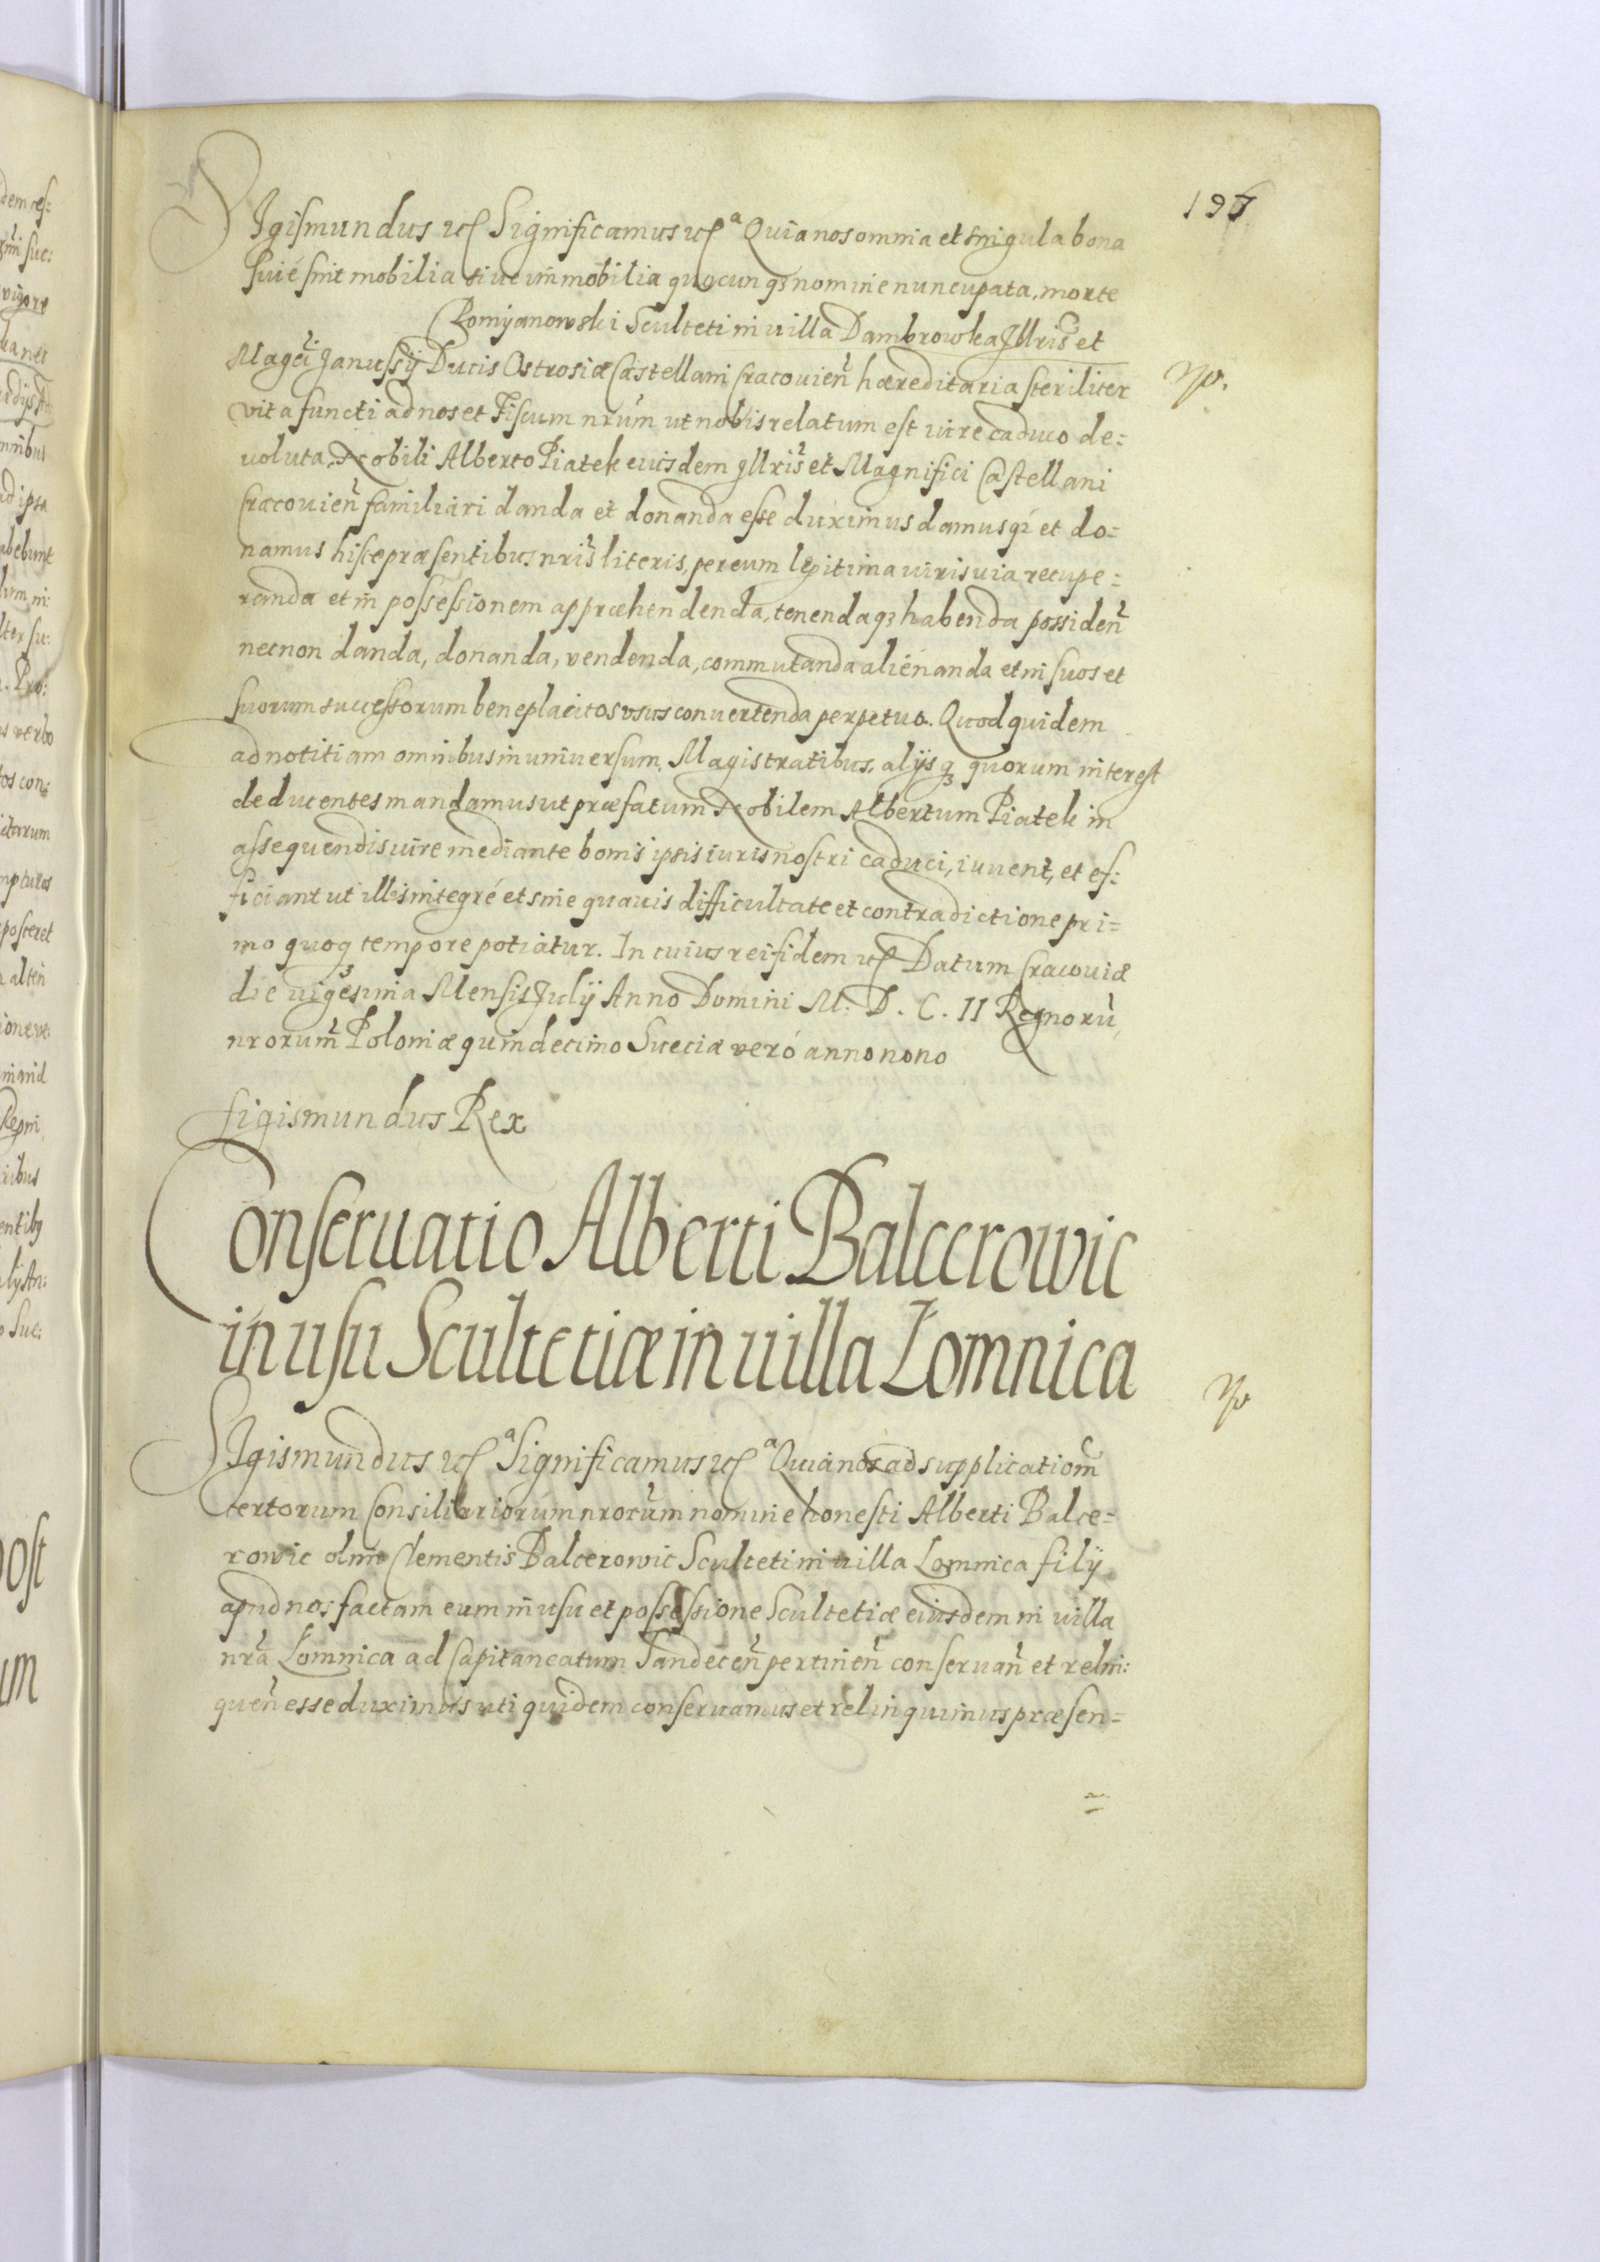 197
Sigismundus etc Significamus etc^a Quia nos omnia et singula bona
siue sint mobilia siue immobilia quocunq3 nomine nuncupata, morte
Romyanowski Sculteti in uilla Dambrowka Illris et
Magci Janussÿ Ducis Ostrosiæ Castellani Cracouien hæreditaria steriliter
vita functi ad nos et Fiscum nrum ut nobis relatum est iure caduco de=
uoluta, Nobili Alberto Piatek eiusdem Illris et Magnifici Castellani
Cracouien familiari danda et donanda esse duximus damusq et do=
namus hisce præsentibus nris literis, per eum legitima iuris uia recupe=
randa et in possessionem appræhendenda, tenendaq3 habenda possiden
necnon danda, donanda, vendenda, commutanda aliénanda et in suos et
suorum successorum beneplacitos usus conuertenda perpetuo. Quod quidem
ad notitiam omnibus in uniuersum, Magistratibus, alÿsq3 quorum interest
deducentes mandamus ut præfatum Nobilem Albertum Piatek in
assequendis iure mediante bonis ipsis iuris nostri caduci, iuuent, et ef:
ficiant ut illis integré et sine quauis difficultate et contradictione pri=
mo quoq3 tempore potiatur. In cuius rei fidem etc Datum Cracouiæ
die uigesima Mensis Julÿ Anno Domini M. D. C. II Regnorū
nrorum Poloniæ quindecimo Sueciæ veró anno nono
Sigismundus Rex
Conseruatio Alberti Balcerowic
in usu Scultetiæ in uilla Lomnica
Sigismundus etc^a Significamus etc^a Quia nos ad supplicationem
certorum Consiliariorum nrorum nomine honesti Alberti Balce=
rowic olim Clementis Balcerowic Sculteti in uilla Lomnica filÿ
apud nos factam eum in usu et possessione Scultetiæ eiusdem in uilla
nra Lomnica ad Capitaneatum Sandecen pertinen conseruan et relin:
quen esse duximus uti quidem conseruamus et relinquimus præsen=